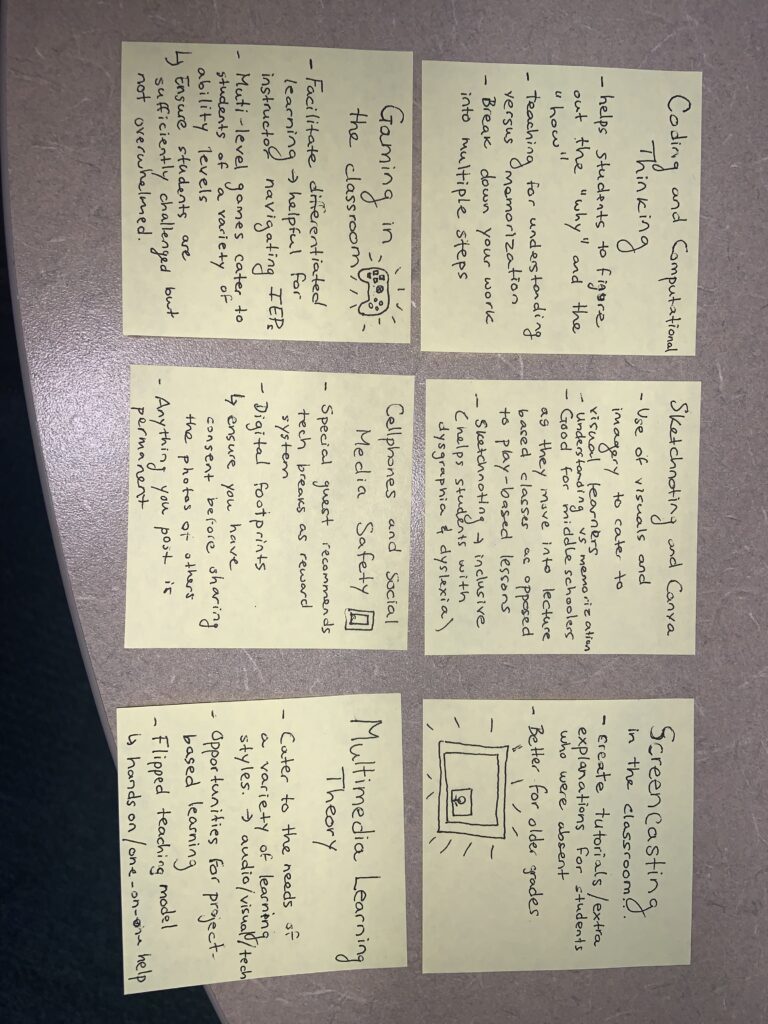 Coding and Computational
Thinking
- helps students to figure
out the "why" and the
"how"
- teaching for understanding
versus memorization
- Break down your work
into multiple steps
Sketchnoting and Canva
- Use of visuals and
imagery to cater to
visual learners
- understanding vs memorization
- Good for middle schoolers
as they move into lecture
based classes as opposed
to play-based lessons
- Sketchnoting → inclusive
(helps students with
dysgraphia & dyslexia)
Screencasting
in the classroom!!
- create tutorials/extra
explanations for students
who were absent
- Better for older grades
Gaming in
the classroom
- Facilitate differentiated
learning → helpful for
instructor navigating IEPs
- Muti-level games cater to
students of a variety of
ability levels
↳ Ensure students are
sufficiently challenged but
not overwhelmed.
Cellphones and Social
Media Safety
- Special guest recommends
tech breaks as reward
system
- Digital footprints
↳ ensure you have
consent before sharing
the photos of others
- Anything you post is
permanent
Multimedia Learning
Theory
- Cater to the needs of
a variety of learning
styles. → audio/visual/tech
- Opportunities for project-
based learning
- Flipped teaching model
↳ hands on/one-on-one help